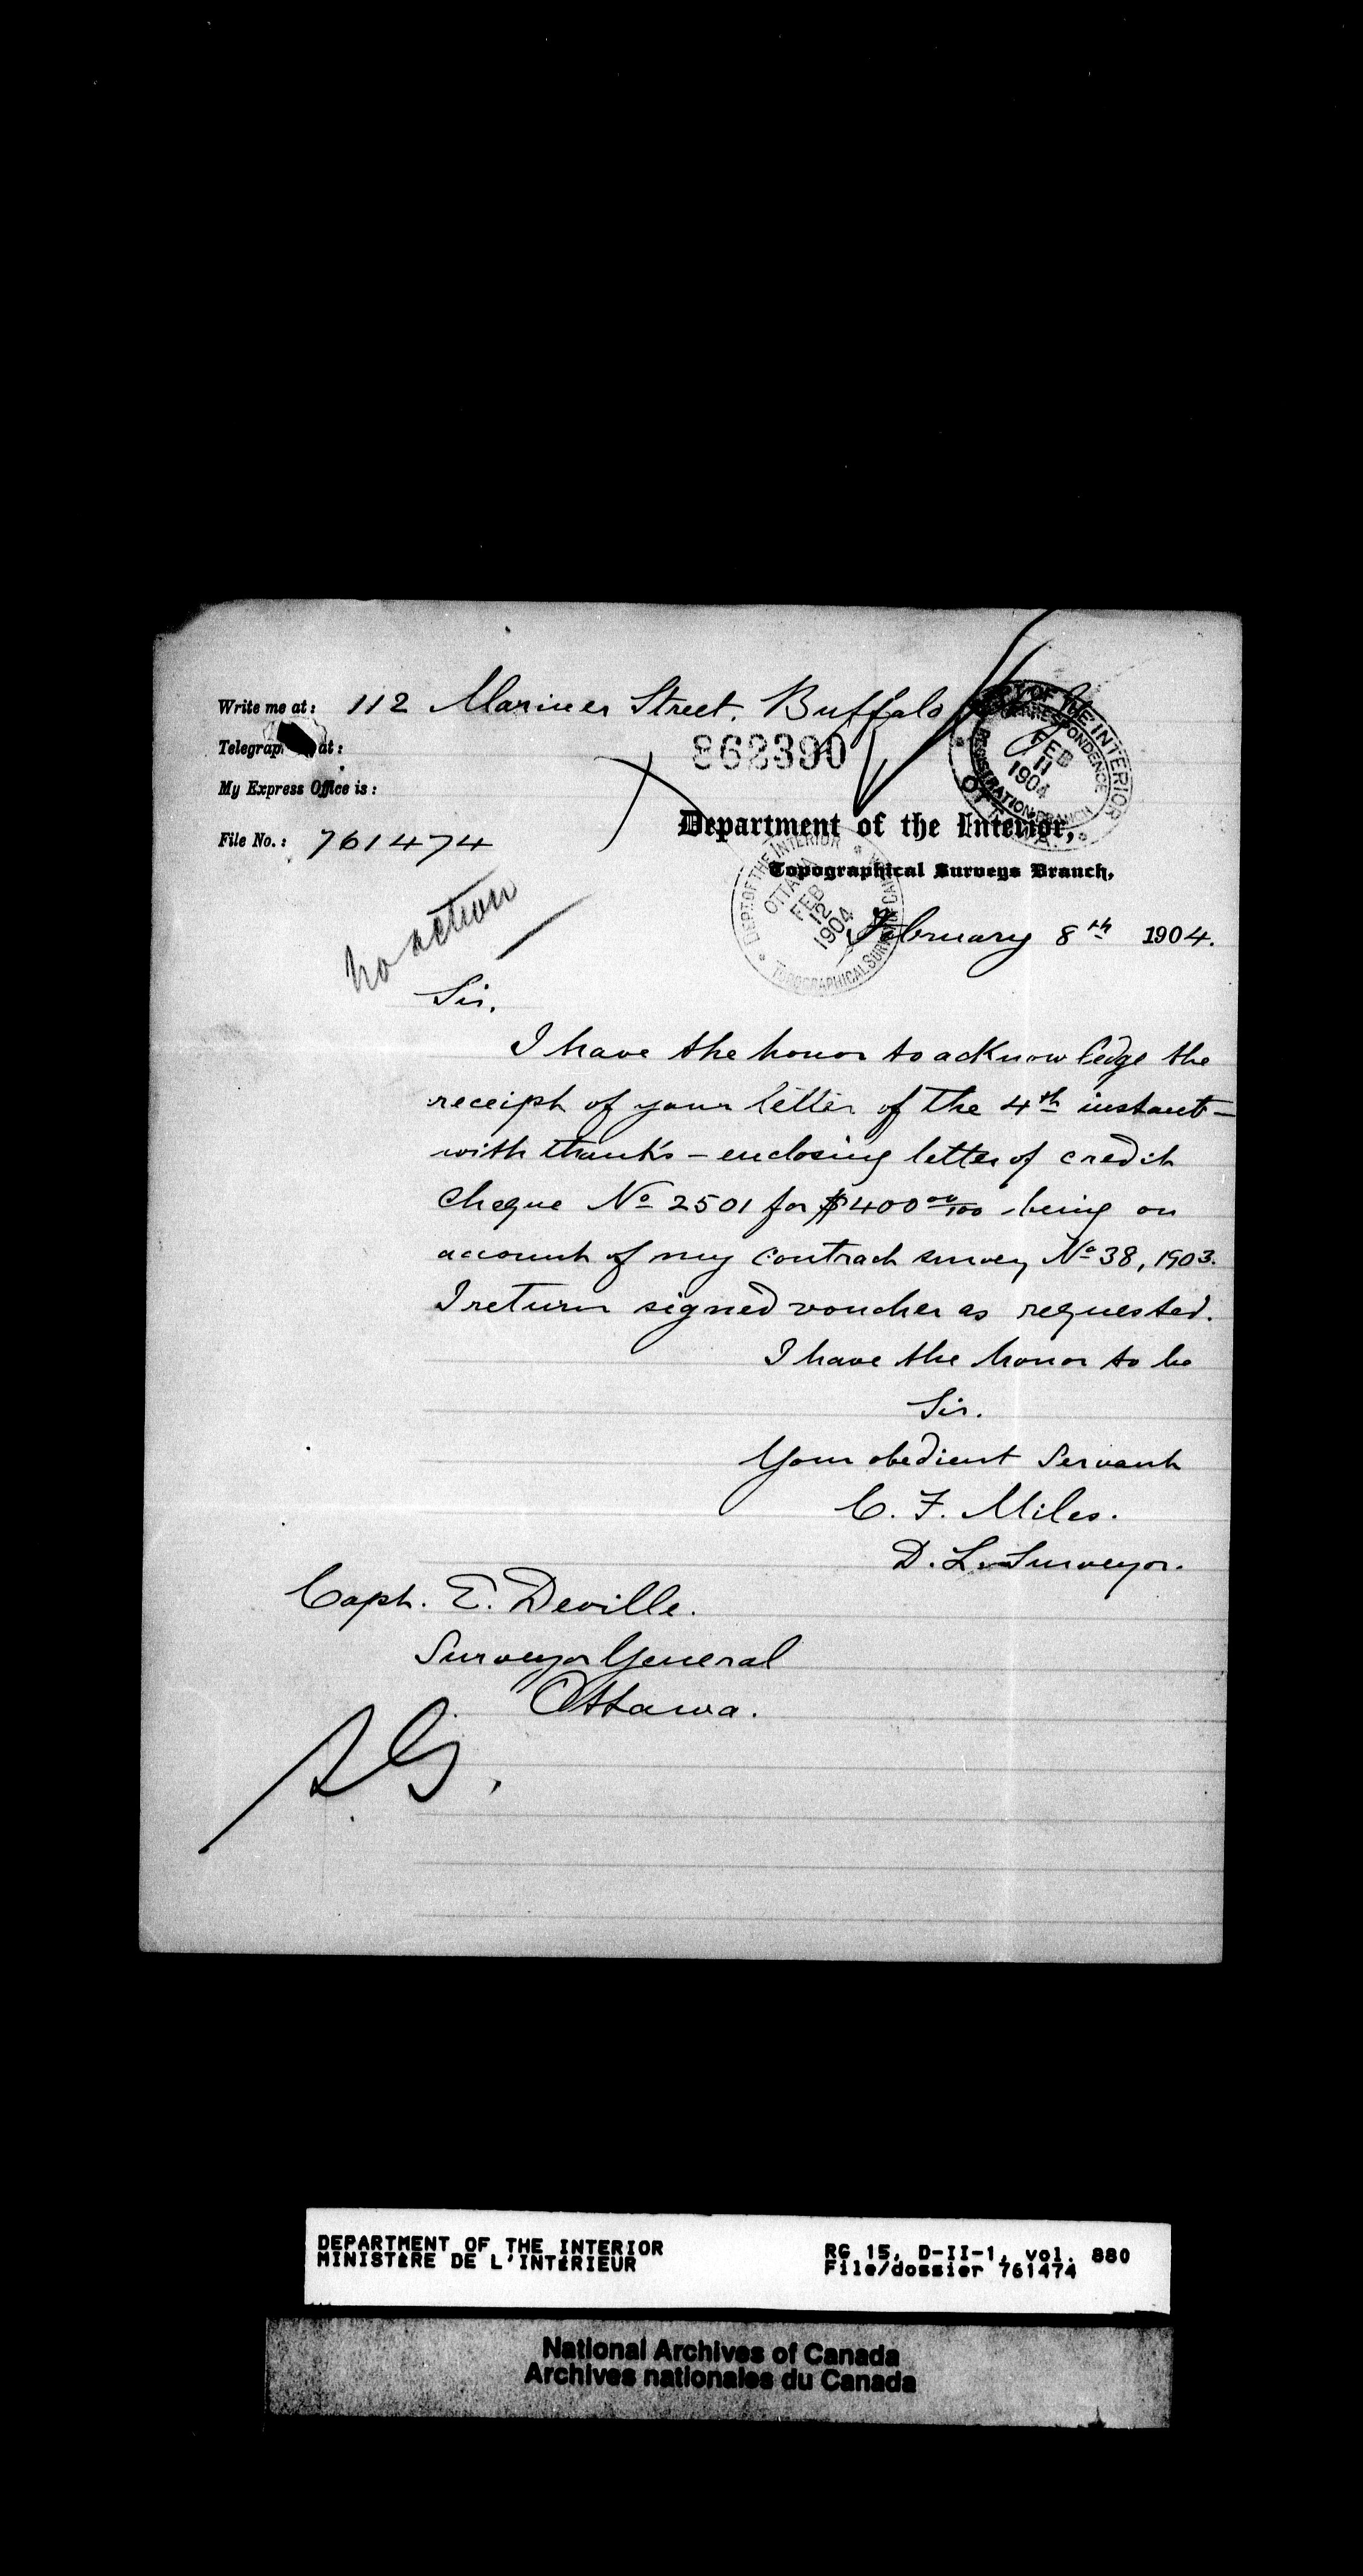 Write me at: 112 Mariner Street, Buffalo
862390
Telegraph at:
My Express Office is:
File No.: 761474
DEPT OF THE INTERIOR
CORRESPONDENCE
REGISTRATION BRANCH
FEB
11
1904
OTTAWA.
Department of the Interior,
Topographical Surveys Branch,
DEPT. OF THE INTERIOR
OTTAWA
FEB
12
1904
TOPOGRAPHICAL SURVEYS OF CANADA
no action
February 8th 1904.
Sir,
I have the honor to acknowledge the
receipt of your letter of the 4th instant –
with thanks – enclosing letter of credit
cheque No 2501 for $400 00/100 being on
account of my contract survey No 38, 1903.
I return signed voucher as requested.
I have the honor to be
Sir.
Your obedient Servant
C. F. Miles.
D. L. Surveyor.
Capt. E. Deville.
Surveyor General
Ottawa.
S.G.
DEPARTMENT OF THE INTERIOR
MINISTÈRE DE L'INTÉRIEUR
RG 15, D-II-1, vol. 880
File/dossier 761474
National Archives of Canada
Archives nationales du Canada